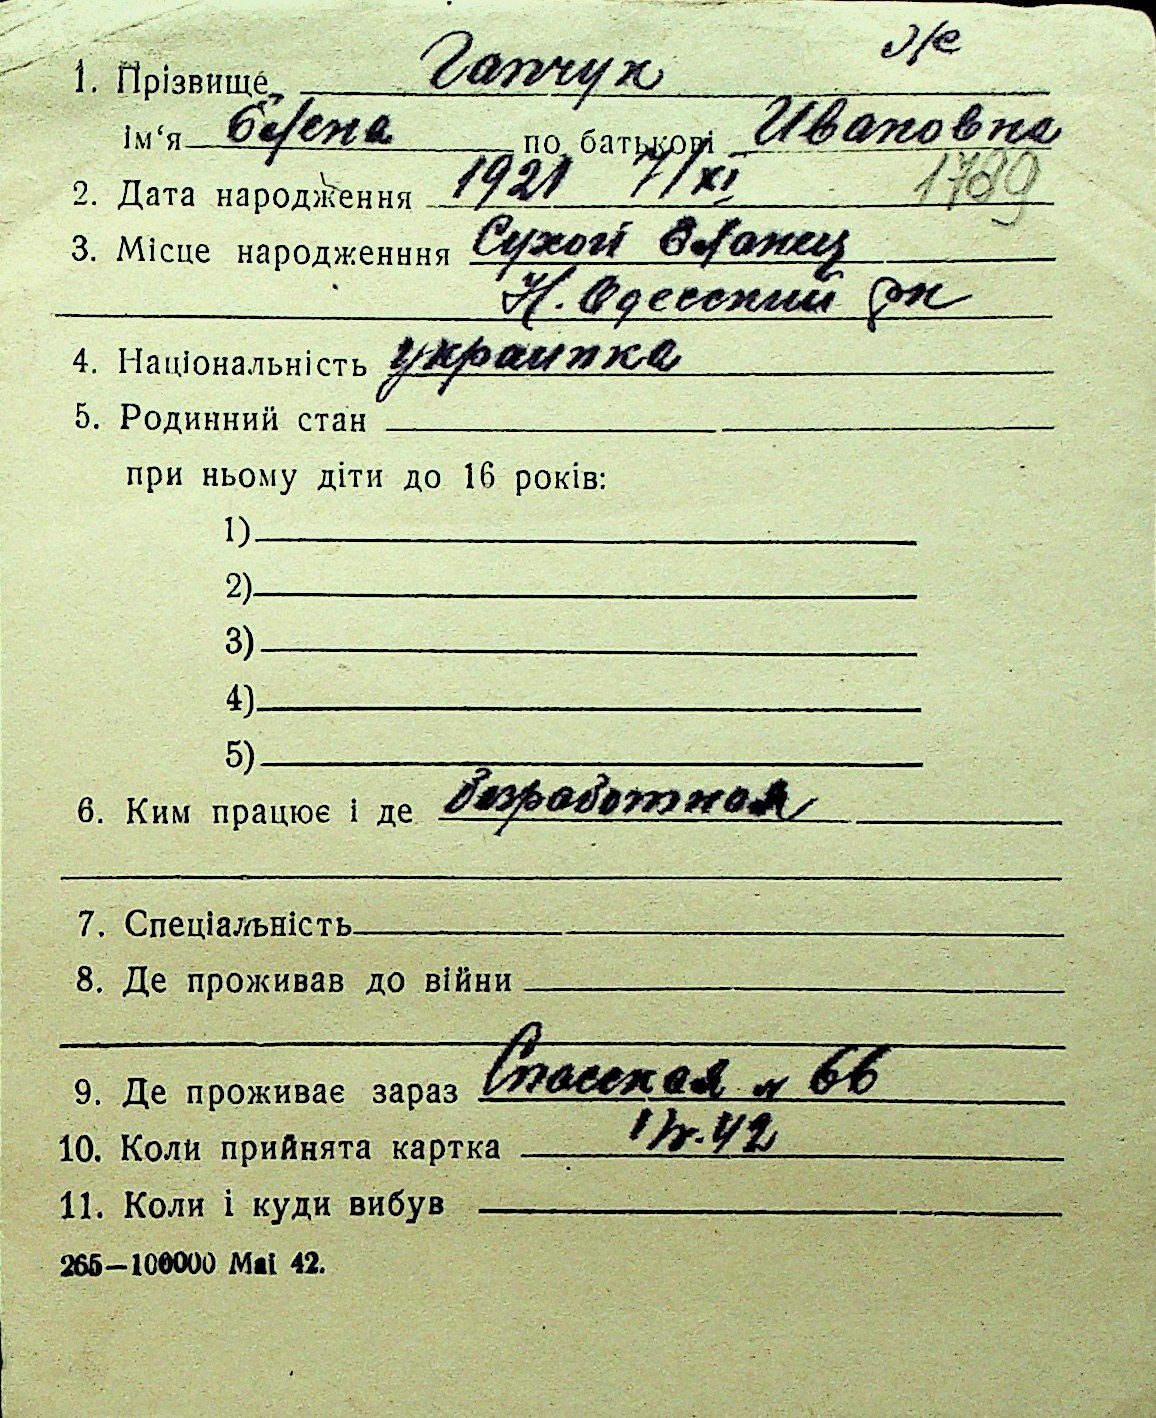 ж
1. Прізвище Гапчук
ім‘я Елена по батькові Ивановна
2. Дата народження 1921 7/XI 1789
3. Місце народженння Сухой Еланец
Н. Одесский рн
4. Національність украинка
5. Родинний стан
при ньому діти до 16 років:
1)
2)
3)
4)
5)
6. Ким працює і де безработная
7. Спеціальність
8. Де проживав до війни
9. Де проживає зараз Спасская № 66
10. Коли прийнята картка 42
11. Коли і куди вибув
265—100000 Mai 42.